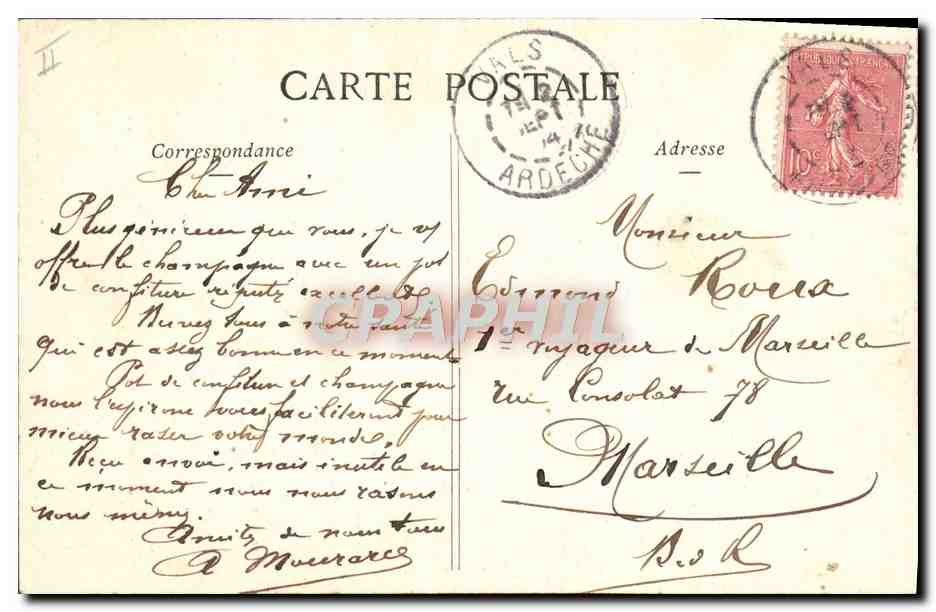 II
CARTE POSTALE
VALS
SEPT
ARDECHE
REPUBLIQUE FRANCAISE
10c
Correspondance
Adresse
Cher Ami
Plus généreux que vous, je vs
offre le champagne avec un pot
de confiture réputée excellente
Buvez tous à notre santé
qui est assez bonne en ce moment
Pot de confiture et champagne
nous l'espérons vous faciliteront pour
mieux raser votre monde.
Reçu envoi, mais inutile en
ce moment nous nous rasons
nous même.
Amitiés de nous tous
A
Monsieur
Edmond Roux
1er voyageur de Marseille
rue Consolat 78
Marseille
B. d R
CPAPHIL